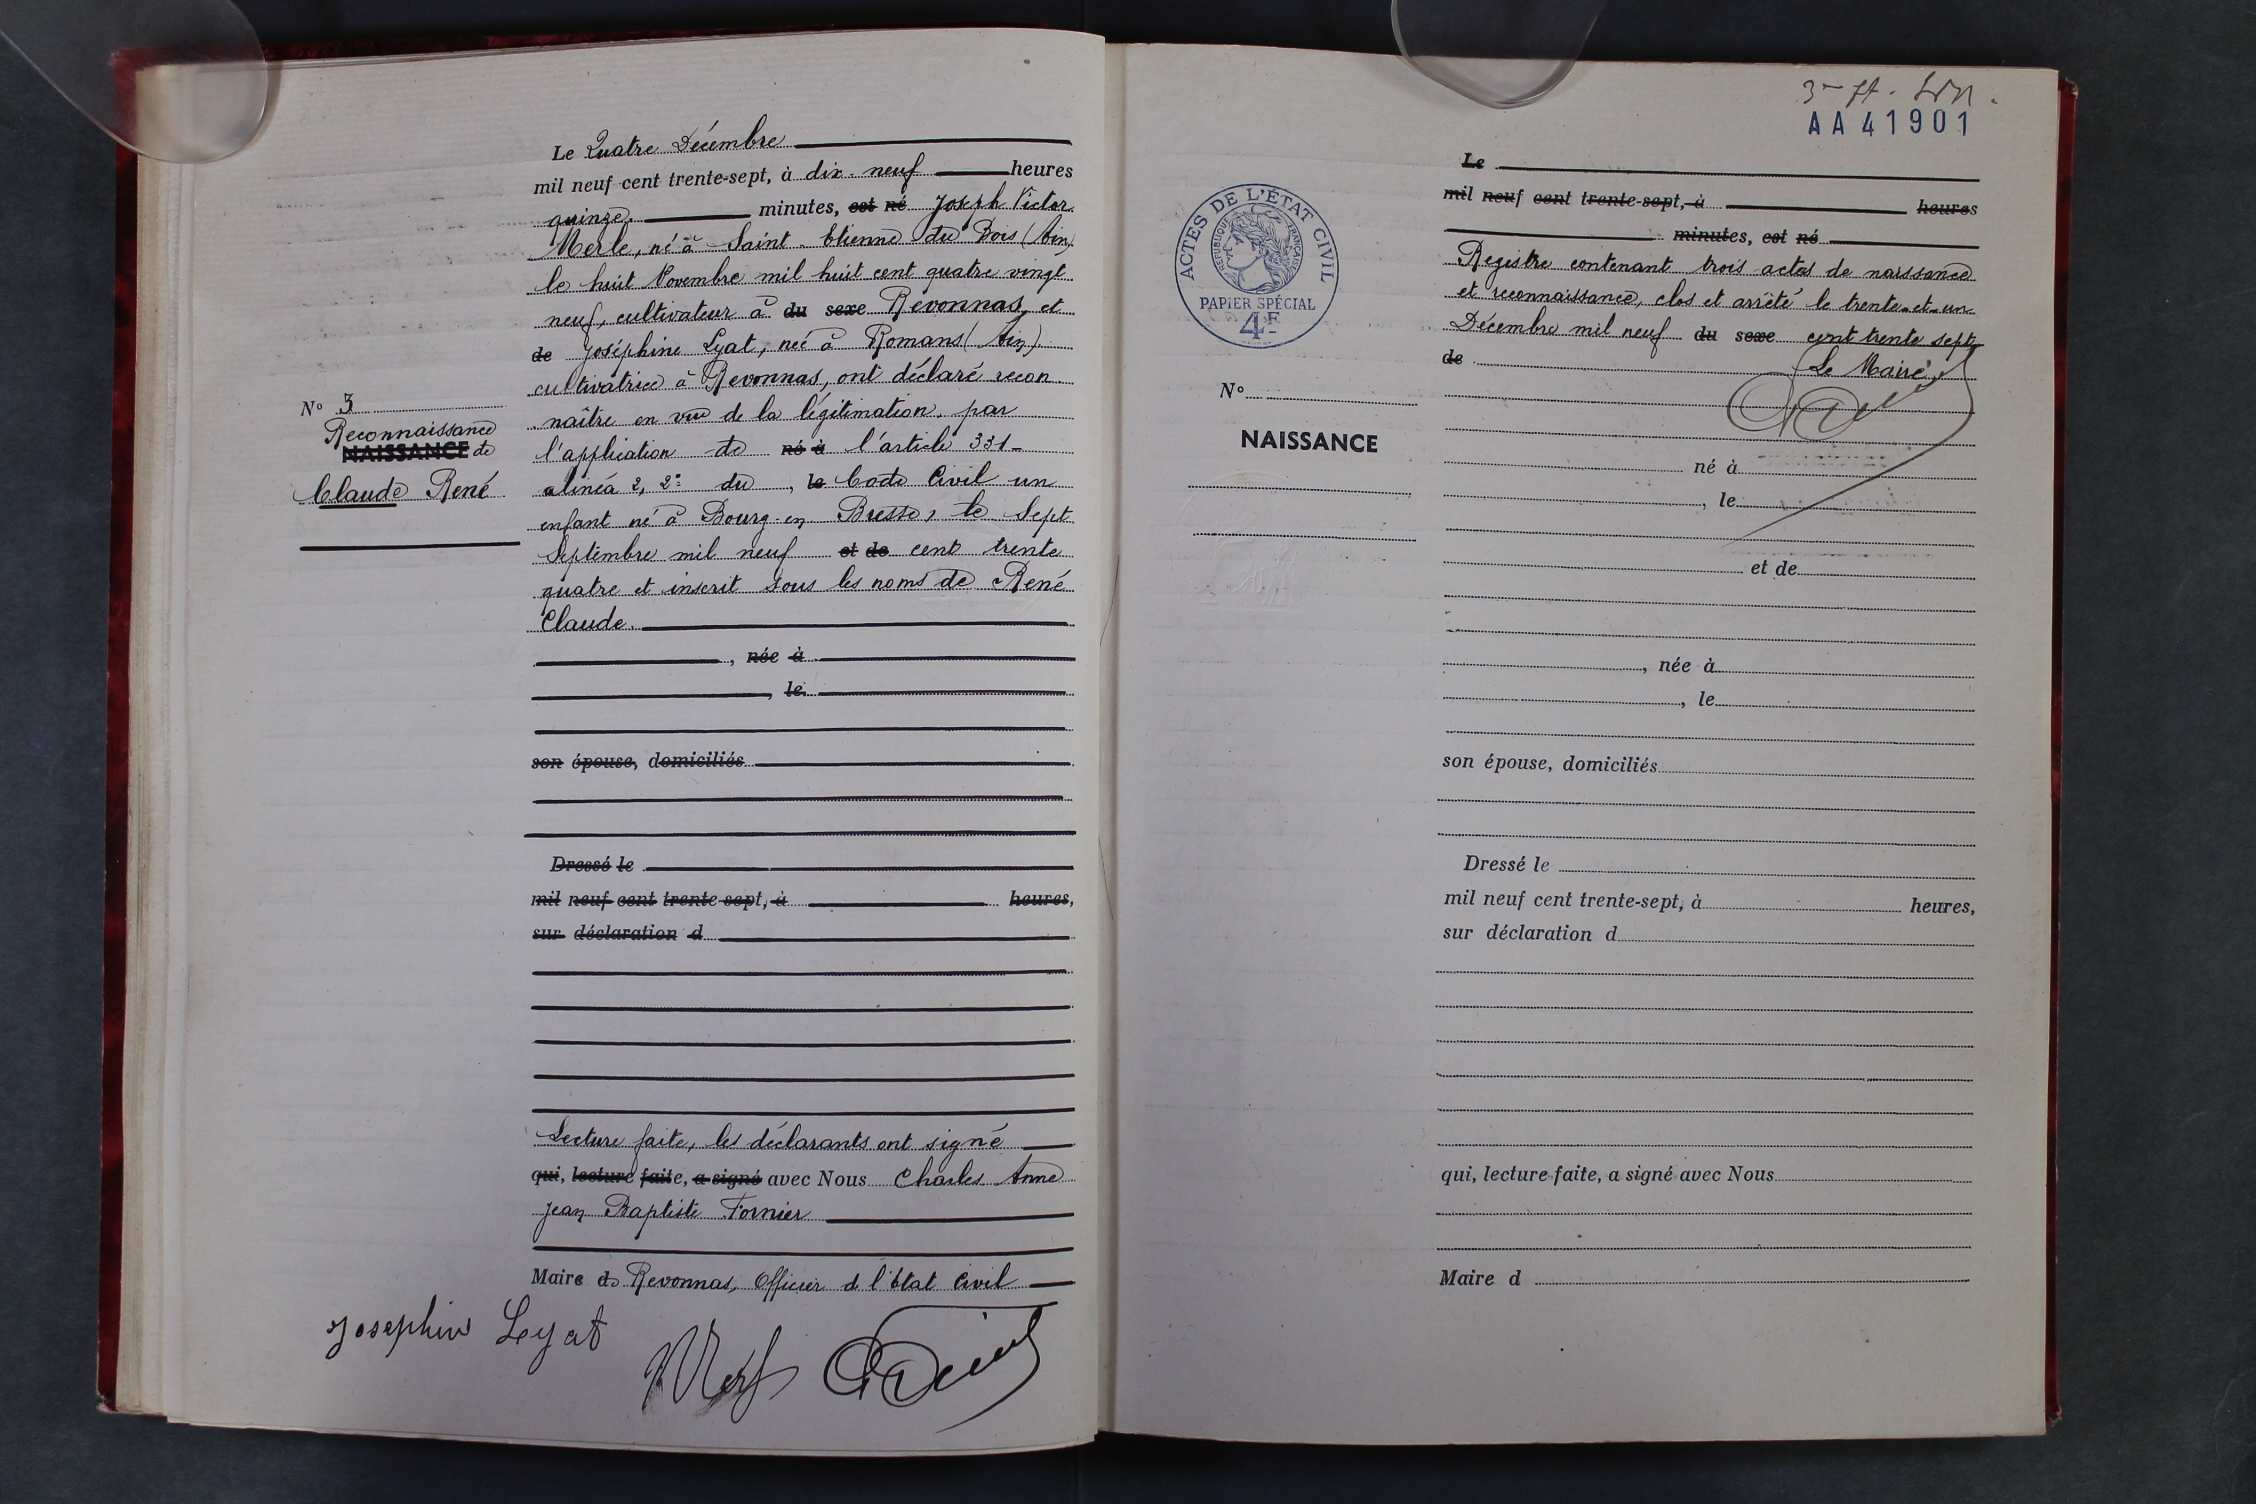 Le Quatre Décembre
mil neuf cent trente-sept, à dix-neuf heures
quinze minutes, est né Joseph Victor
Merle, né à Saint-Etienne du Bois (Ain)
le huit Novembre mil huit cent quatre vingt
neuf, cultivateur à du sexe Revonnas, et
de Joséphine Lyat, née à Romans (Ain)
cultivatrice à Revonnas, ont déclaré recon
N° 3
naître en vue de la légitimation, par
Reconnaissance
l'application de né à l'article 331-
NAISSANCE de
alinéa 2, 2° du , le Code Civil un
Claude René
enfant né à Bourg-en Bresse, le Sept
Septembre mil neuf et de cent trente
quatre et inscrit sous les noms de René
Claude.
, née à
, le
son épouse, domiciliés
Dressé le
mil neuf cent trente-sept, à heures,
sur déclaration d
Lecture faite, les déclarants ont signé
qui, lecture faite, a signé avec Nous Charles Anne
Jean Baptiste Fornier
Maire de Revonnas, Officier d l'Etat Civil
Josephine Lyat
Merle
AA 41901
Le
mil neuf cent trente-sept, à heures
minutes, est né
ACTES DE L'ÉTAT CIVIL
RÉPUBLIQUE FRANÇAISE
PAPIER SPÉCIAL
4F
Registre contenant trois actes de naissance
et reconnaissance, clos et arrêté le trente-et-un
Décembre mil neuf du sexe cent trente sept
de Le Maire,
N°
NAISSANCE
né à
, le
et de
, née à
, le
son épouse, domiciliés
Dressé le
mil neuf cent trente-sept, à heures,
sur déclaration d
qui, lecture faite, a signé avec Nous
Maire d